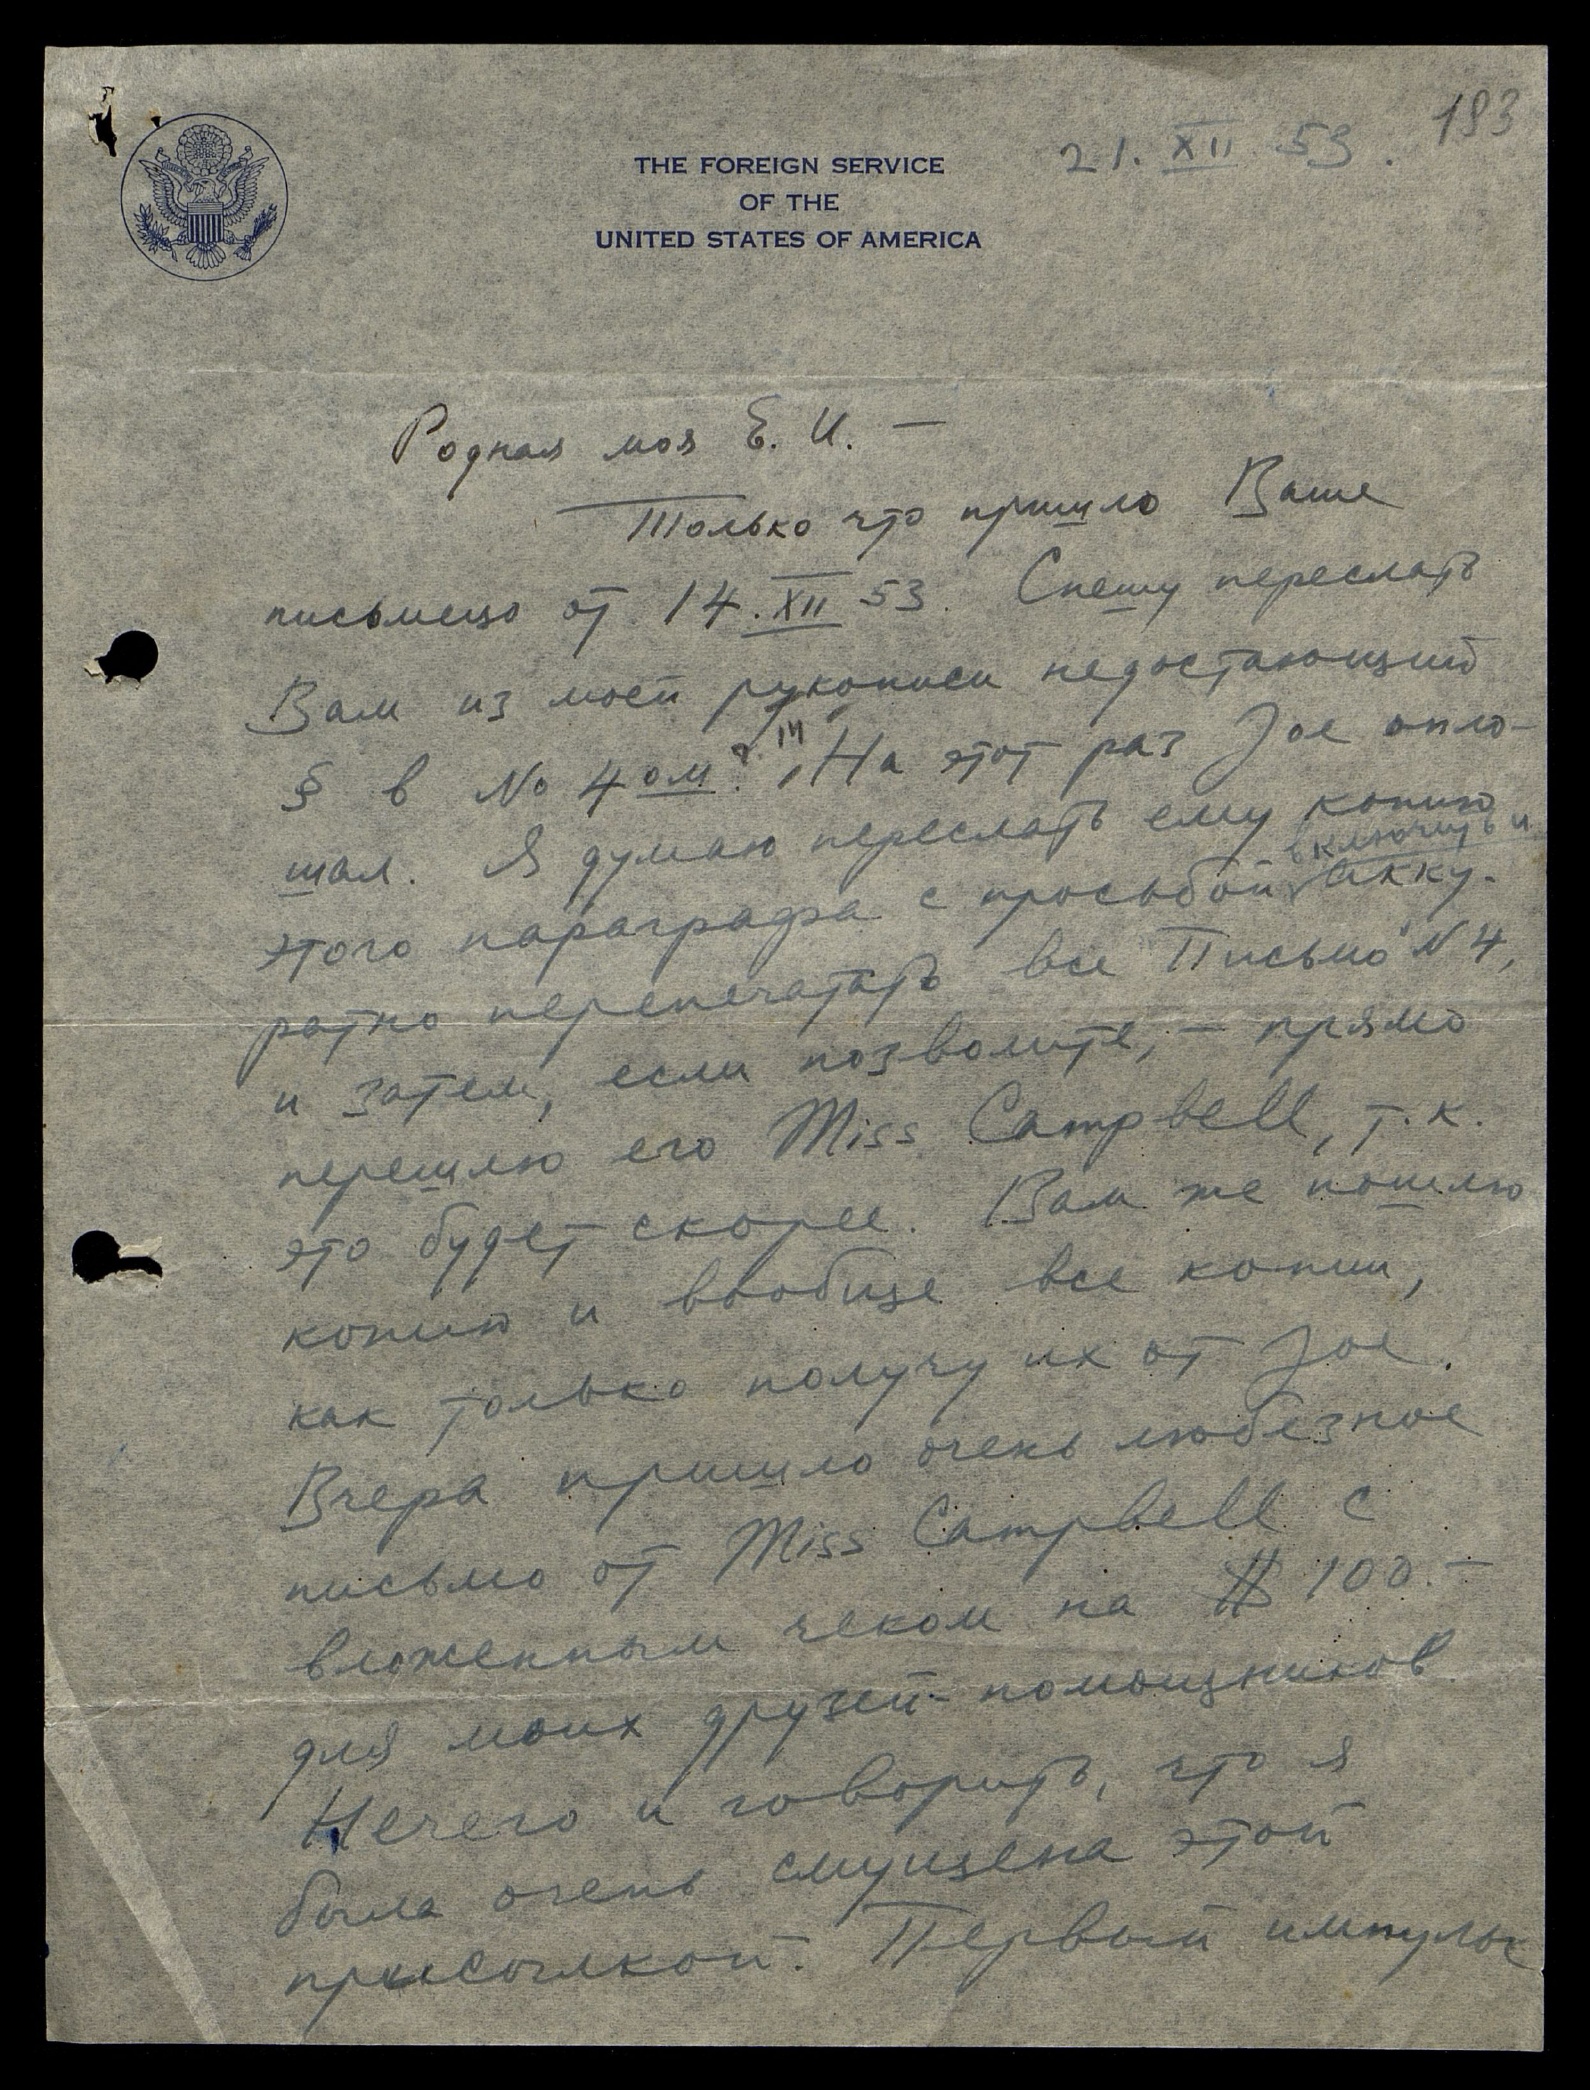 193
21. XII 53.
THE FOREIGN SERVICE
OF THE
UNITED STATES OF AMERICA
Родная моя Е. И. —
Только что пришло Ваше
письмецо от 14. XII 53. Спешу переслать
Вам из моей рукописи недостающий
§ в No 4ом. На этот раз Joe опло-
шал. Я думаю переслать ему копию
включить и
этого параграфа с просьбой акку-
ратно перепечатать все Письмо N 4,
и затем, если позволите, — прямо
перешлю его Miss Campbell, т. к.
это будет скорее. Вам же пошлю
копию и вообще все копии,
как только получу их от Joe.
Вчера пришло очень любезное
письмо от Miss Campbell с
вложенным чеком на $ 100.—
для моих друзей-помощников.
Нечего и говорить, что я
была очень смущена этой
присылкой. Первый импульс